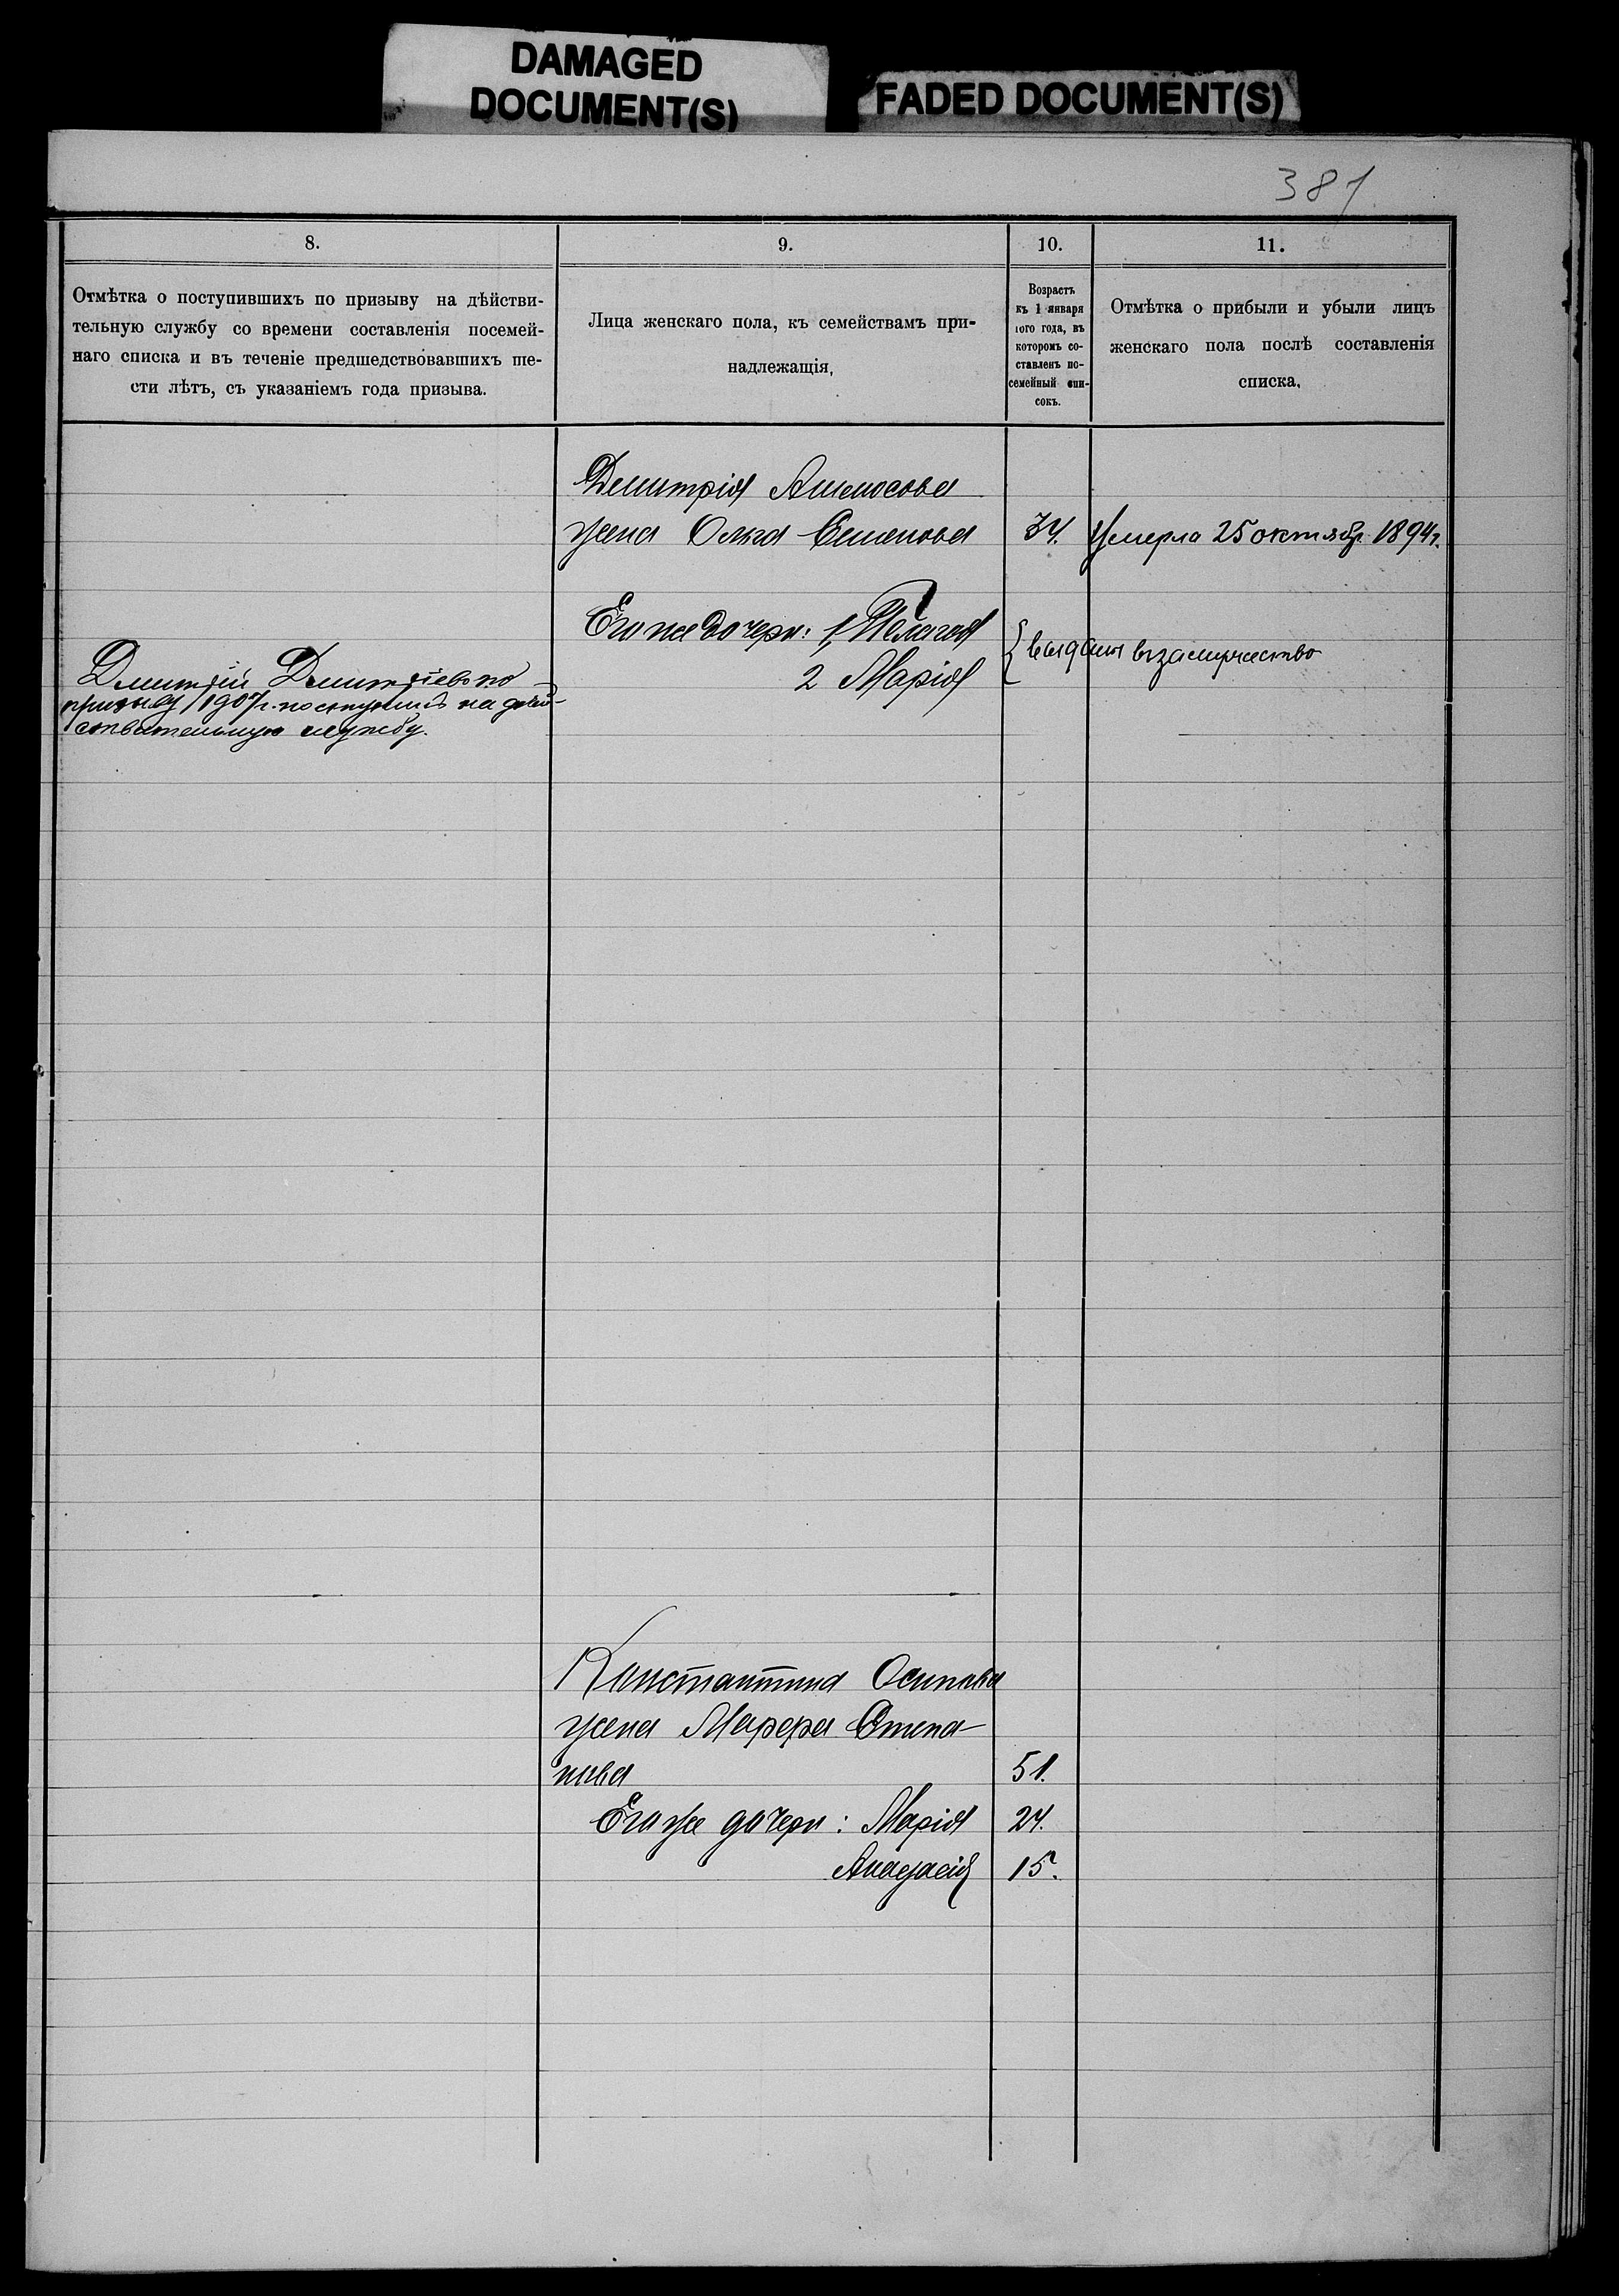 DAMAGED
DOCUMENT(S)
FADED DOCUMENT(S)
381
8.
9.
10.
11.
Отмѣтка о поступившихъ по призыву на дѣйстви-
тельную службу со времени составленія посемей-
наго списка и въ теченіе предшедствовавшихъ ше-
сти лѣтъ, съ указаніемъ года призыва.
Лица женскаго пола, къ семействамъ при-
надлежащія,
Возрастъ
къ 1 января
того года, въ
которомъ со-
ставленъ по-
семейный спи-
сокъ.
Отмѣтка о прибыли и убыли лицъ
женскаго пола послѣ составленія
списка.
Димитрія
жена Ольга Семенова 34. Умерла 25 октябр. 1894 г.
Его же дочери: 1, Пелагея
2 Марія
{ выданы въ замужество
Дмитрій Дмитріевъ по
призыву 1907 г. поступилъ на дѣй-
ствительную службу.
Константина Осипова
жена Марѳа Степа-
нова 51.
Его же дочери: Марія 24.
Анастасія 15.